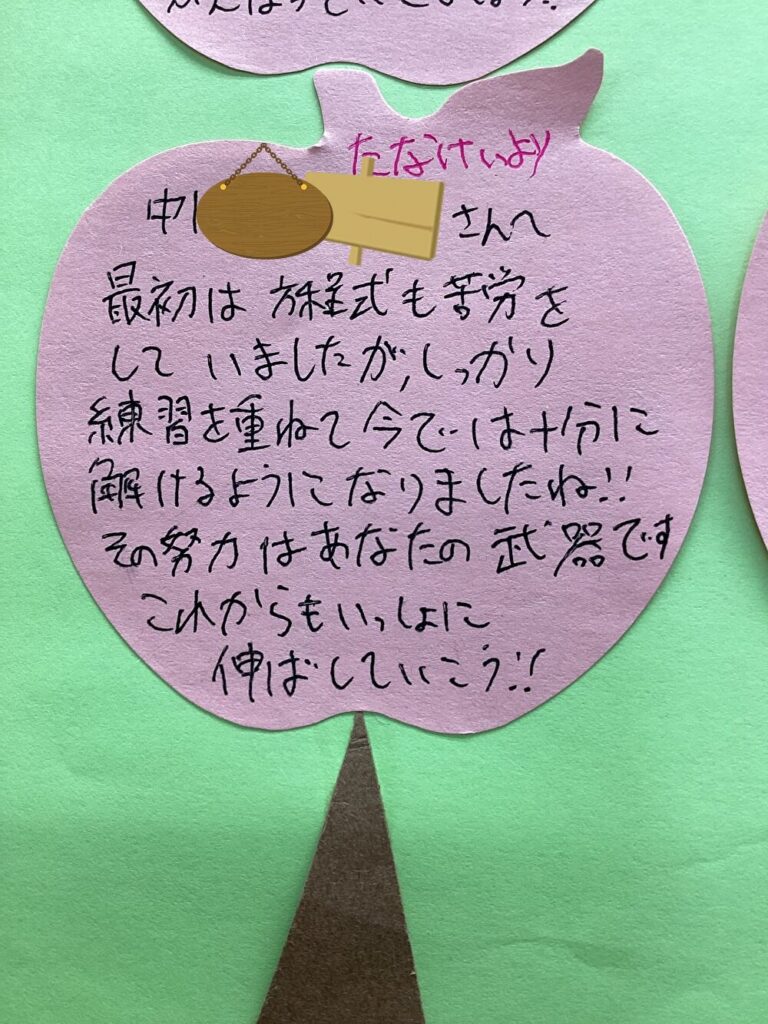 がんばっていきましょう!!
たなけいより
中1 さんへ
最初は 方程式も苦労を
して いましたが、しっかり
練習を重ねて今では十分に
解けるようになりましたね!!
その努力はあなたの武器です
これからもいっしょに
伸ばしていこう!!